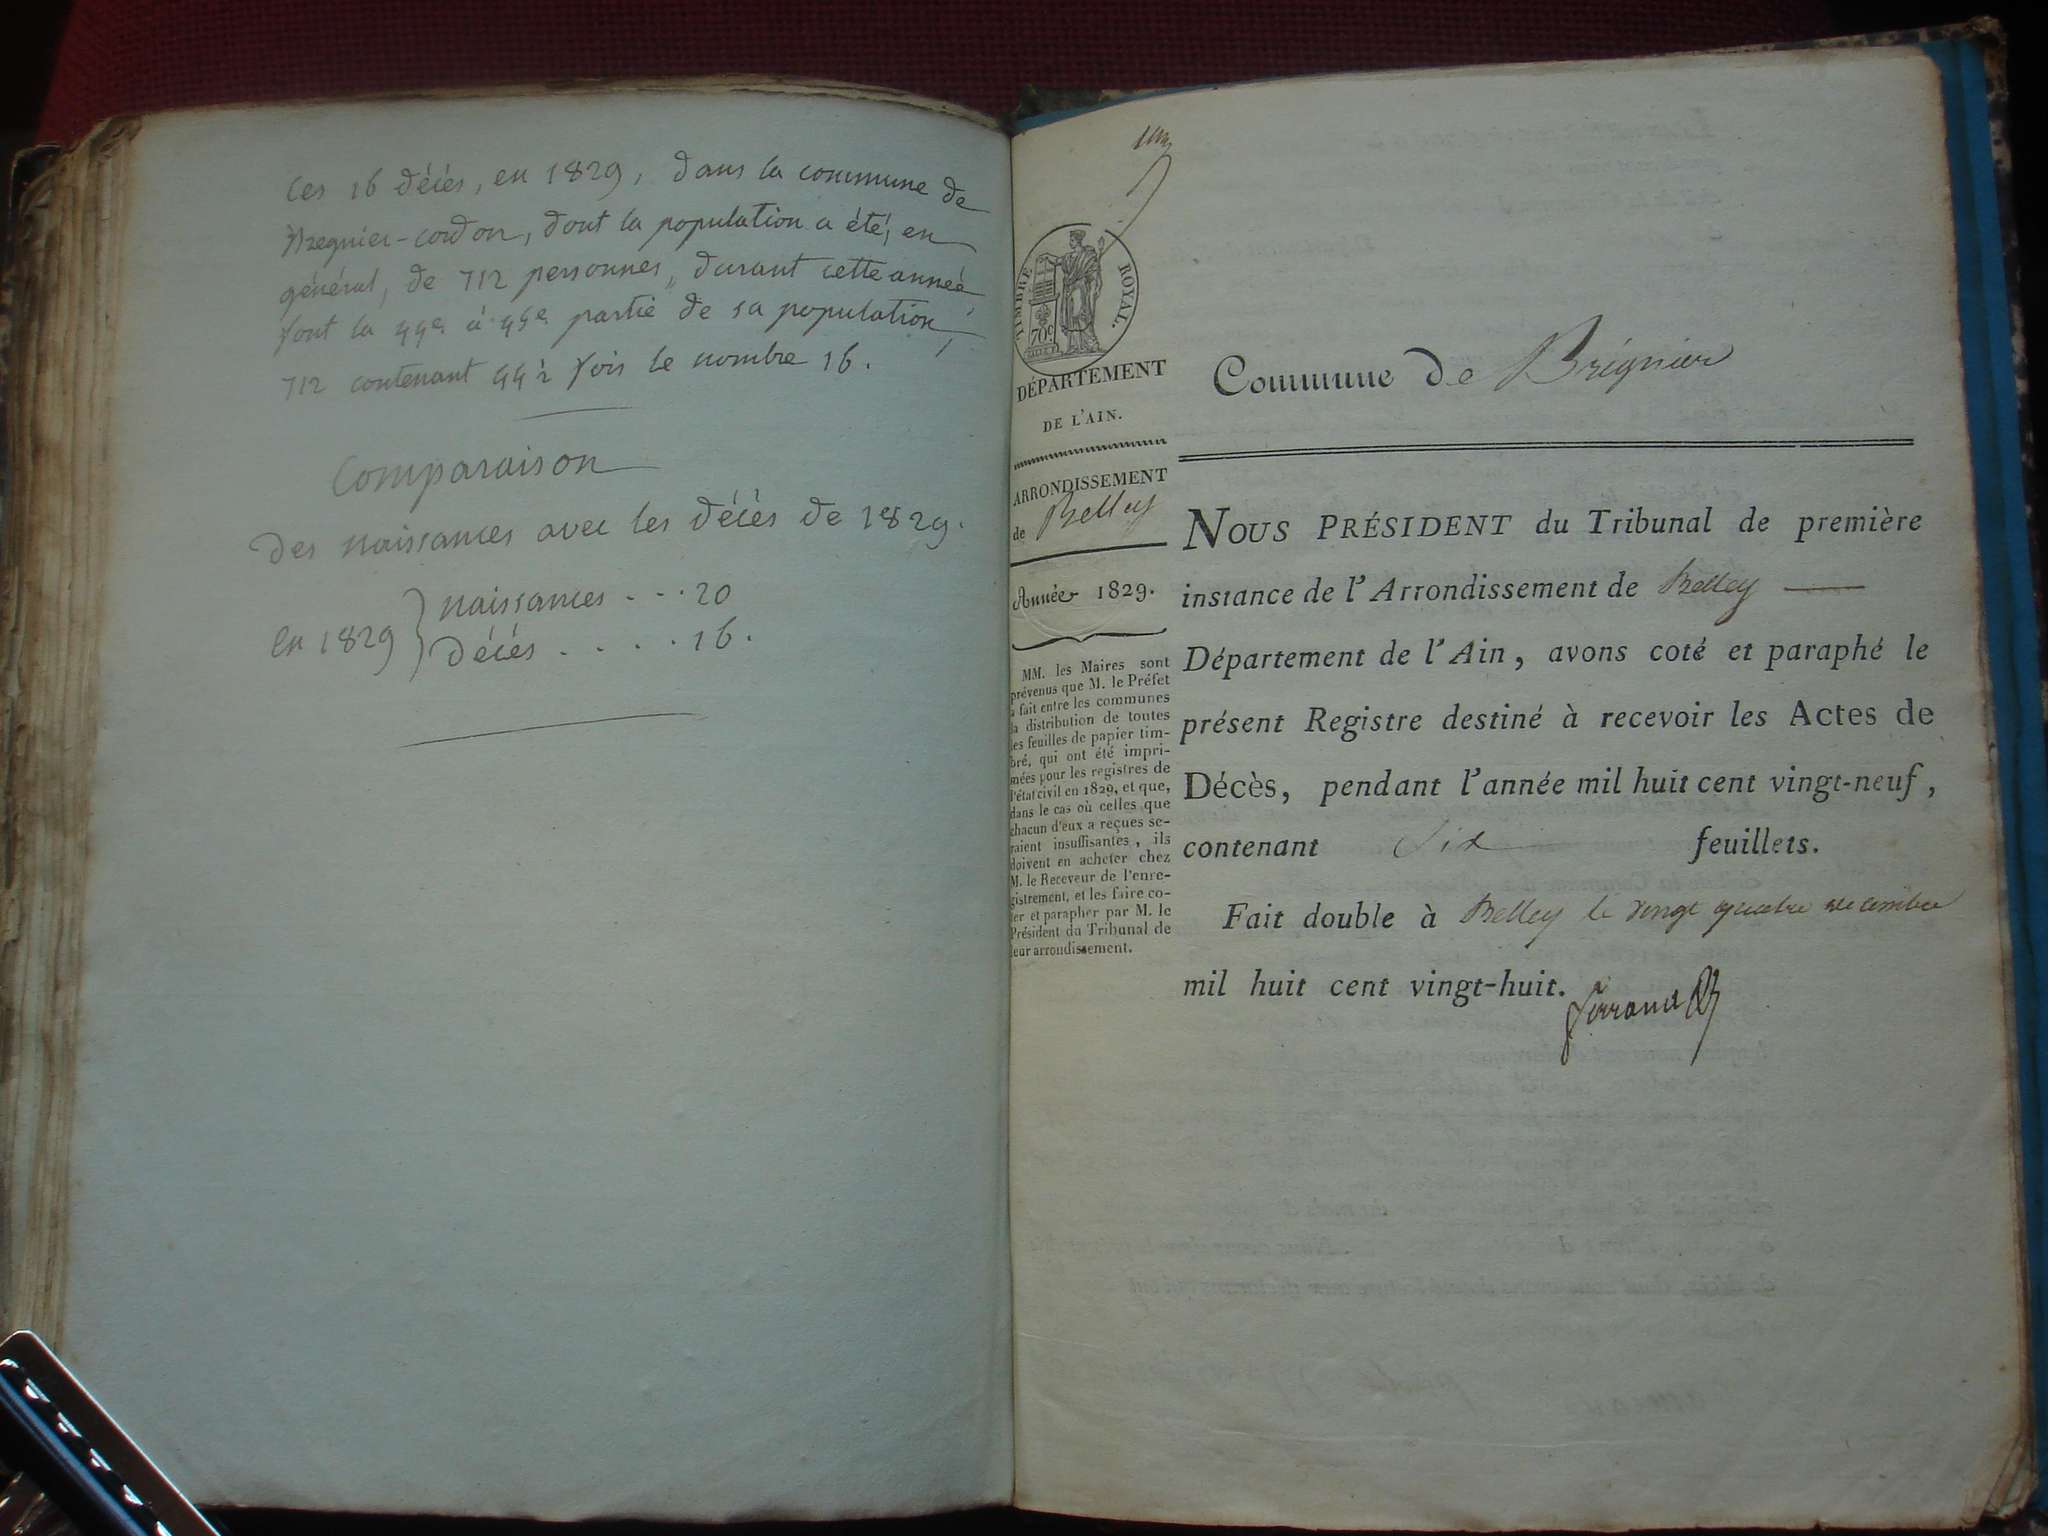 Ces 16 décès, en 1829, dans la commune de
Bregnier-cordon, dont la population a été, en
général, de 712 personnes, durant cette année,
font la 44e à 45e partie de sa population,
712 contenant 44 ½ fois le nombre 16.
Comparaison
des naissances avec les décès de 1829.
en 1829 { naissances . . . 20
décès . . . . 16.
TIMBRE ROYAL.
70c
DÉPARTEMENT
DE L'AIN.
ARRONDISSEMENT
de Belley
Année 1829.
MM. les Maires sont
prévenus que M. le Préfet
a fait entre les communes
la distribution de toutes
les feuilles de papier tim-
bré, qui ont été impri-
mées pour les registres de
l'état civil en 1829, et que,
dans le cas où celles que
chacun d'eux a reçues se-
raient insuffisantes, ils
doivent en acheter chez
M. le Receveur de l'enre-
gistrement, et les faire co-
ter et parapher par M. le
Président du Tribunal de
leur arrondissement.
Commune de Brégnier
NOUS PRÉSIDENT du Tribunal de première
instance de l'Arrondissement de Belley
Département de l'Ain, avons coté et paraphé le
présent Registre destiné à recevoir les Actes de
Décès, pendant l'année mil huit cent vingt-neuf,
contenant Six feuillets.
Fait double à Belley le vingt quatre decembre
mil huit cent vingt-huit.